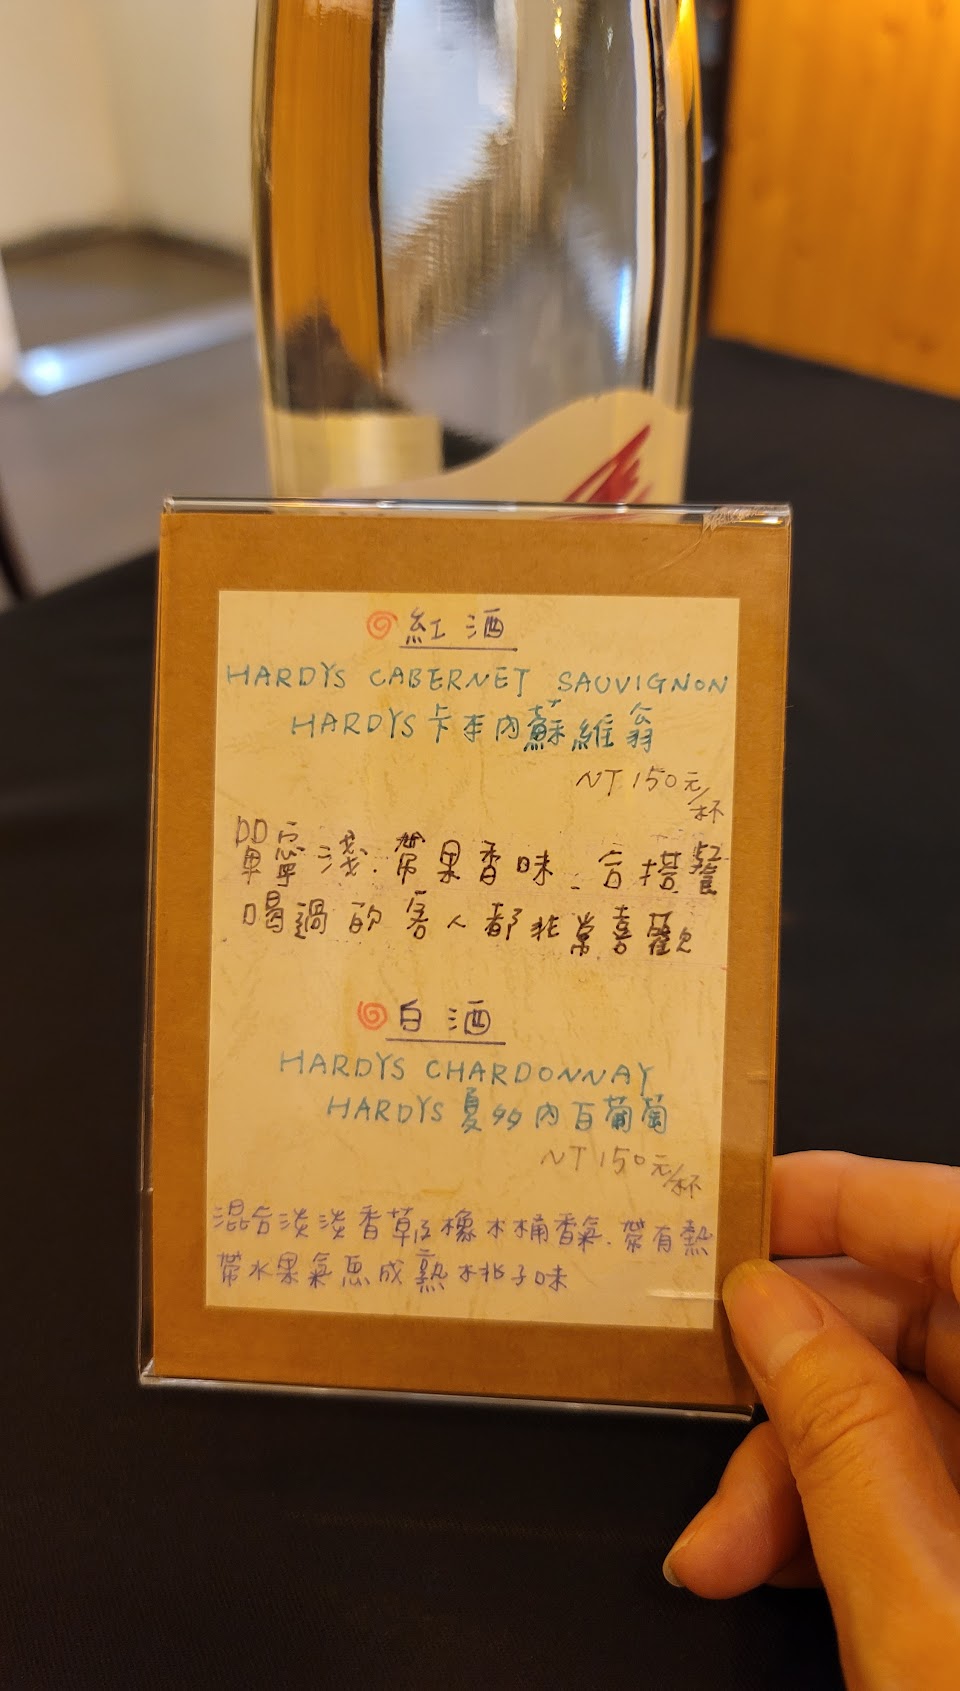 紅酒
HARDYS CABERNET SAUVIGNON
HARDYS 卡本內蘇維翁
NT 150元/杯
單寧淺.帶果香味.合搭餐
喝過的客人都非常喜歡
白酒
HARDYS CHARDONNAY
HARDYS 夏多內白葡萄
NT 150元/杯
混合淡淡香草及橡木桶香氣.帶有熱
帶水果氣息成熟桃子味